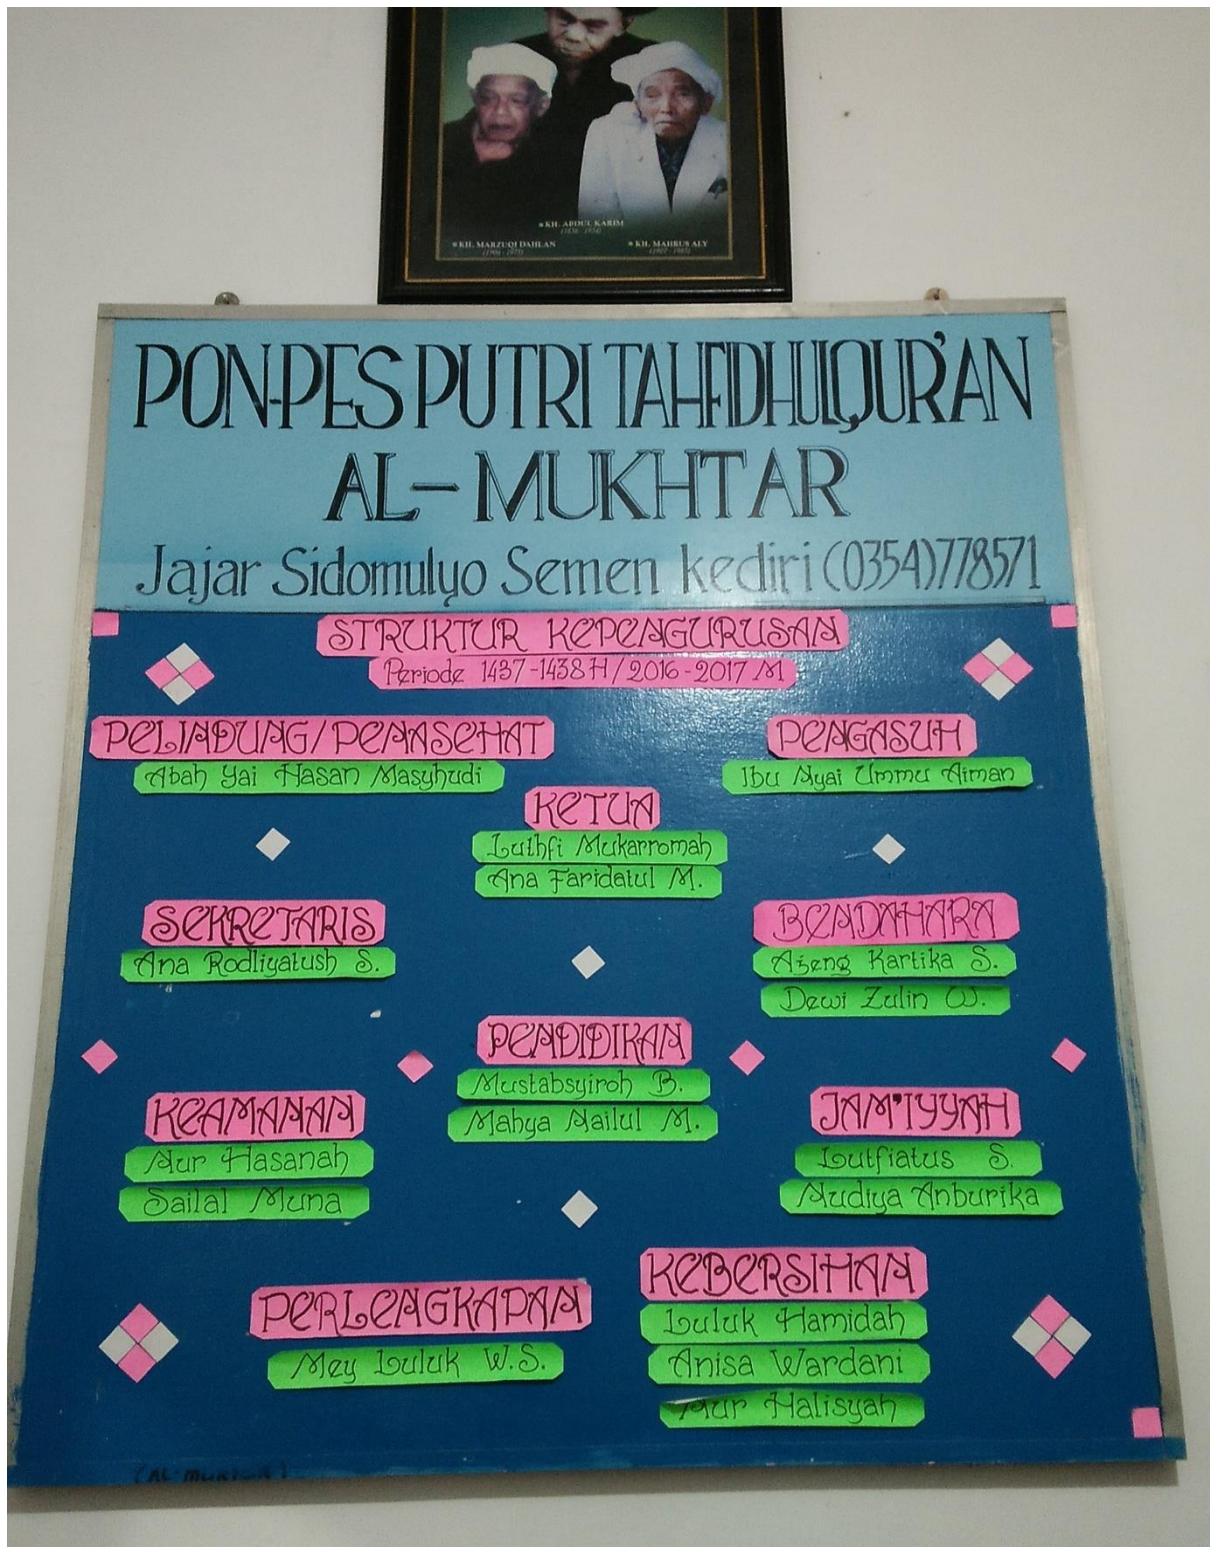 KH. ABDUL KARIM
KH. MARZUQI DAHLAN
KH. MAHRUS ALY
PON-PES PUTRI TAHFIDHUL QUR'AN
AL-MUKHTAR
Jajar Sidomulyo Semen kediri (0354)778571
STRUKTUR KEPENGURUSAN
Periode 1437-1438 H/2016-2017 M
PELINDUNG/PENASEHAT
Abah Yai Hasan Masyhudi
PENGASUH
Ibu Nyai Ummu Aiman
KETUA
Luthfi Mukarromah
Ana Faridatul M.
SEKRETARIS
Ana Rodliyatush S.
BENDAHARA
Ajeng Kartika S.
Dewi Zulin W.
PENDIDIKAN
Mustabsyiroh B.
Mahya Nailul M.
KEAMANAN
Nur Hasanah
Sailal Muna
JAM'IYYAH
Lutfiatus S.
Nudiya Anburika
PERLENGKAPAN
Mey Luluk W.S.
KEBERSIHAN
Luluk Hamidah
Anisa Wardani
Nur Halisyah